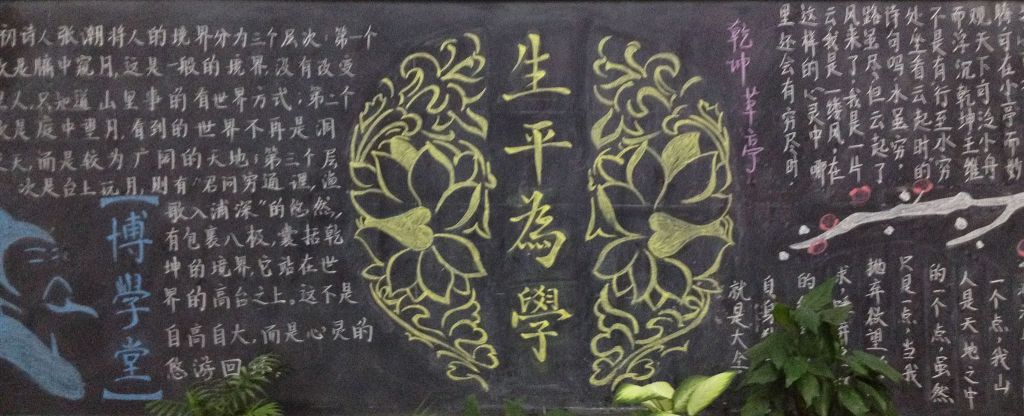 初诗人张潮将人的境界分为三个层次：第一
次是牖中窥月，这是一般的境界，没有改变
人，只知道山里事的有世界方式；第二个
次是庭中望月，看到的世界不再是洞
天，而是较为广阔的天地；第三个层
次是台上玩月，则有“君问穷通理，渔
歌入浦深”的悠然，
有包裹八极，囊括乾
坤的境界，它站在世
界的高台之上。这不是
自高自大，而是心灵的
悠游回
【博學堂】
生平為學
乾坤草亭
可在小亭而妙
观天下，可泛小舟
而浮沉乾坤，王维
不是有“行至水穷
处，坐看云起时”的
诗句吗？水虽穷，
路虽尽，但云起了
风来了，我是一片
云，我是一缕风，在
这样的心灵中，哪
里还会有穷尽时，
一个点，我山
人是天地之中
的一个点，虽然
只是一点，当我
抛弃欲望，
求
的
自身
就是大全